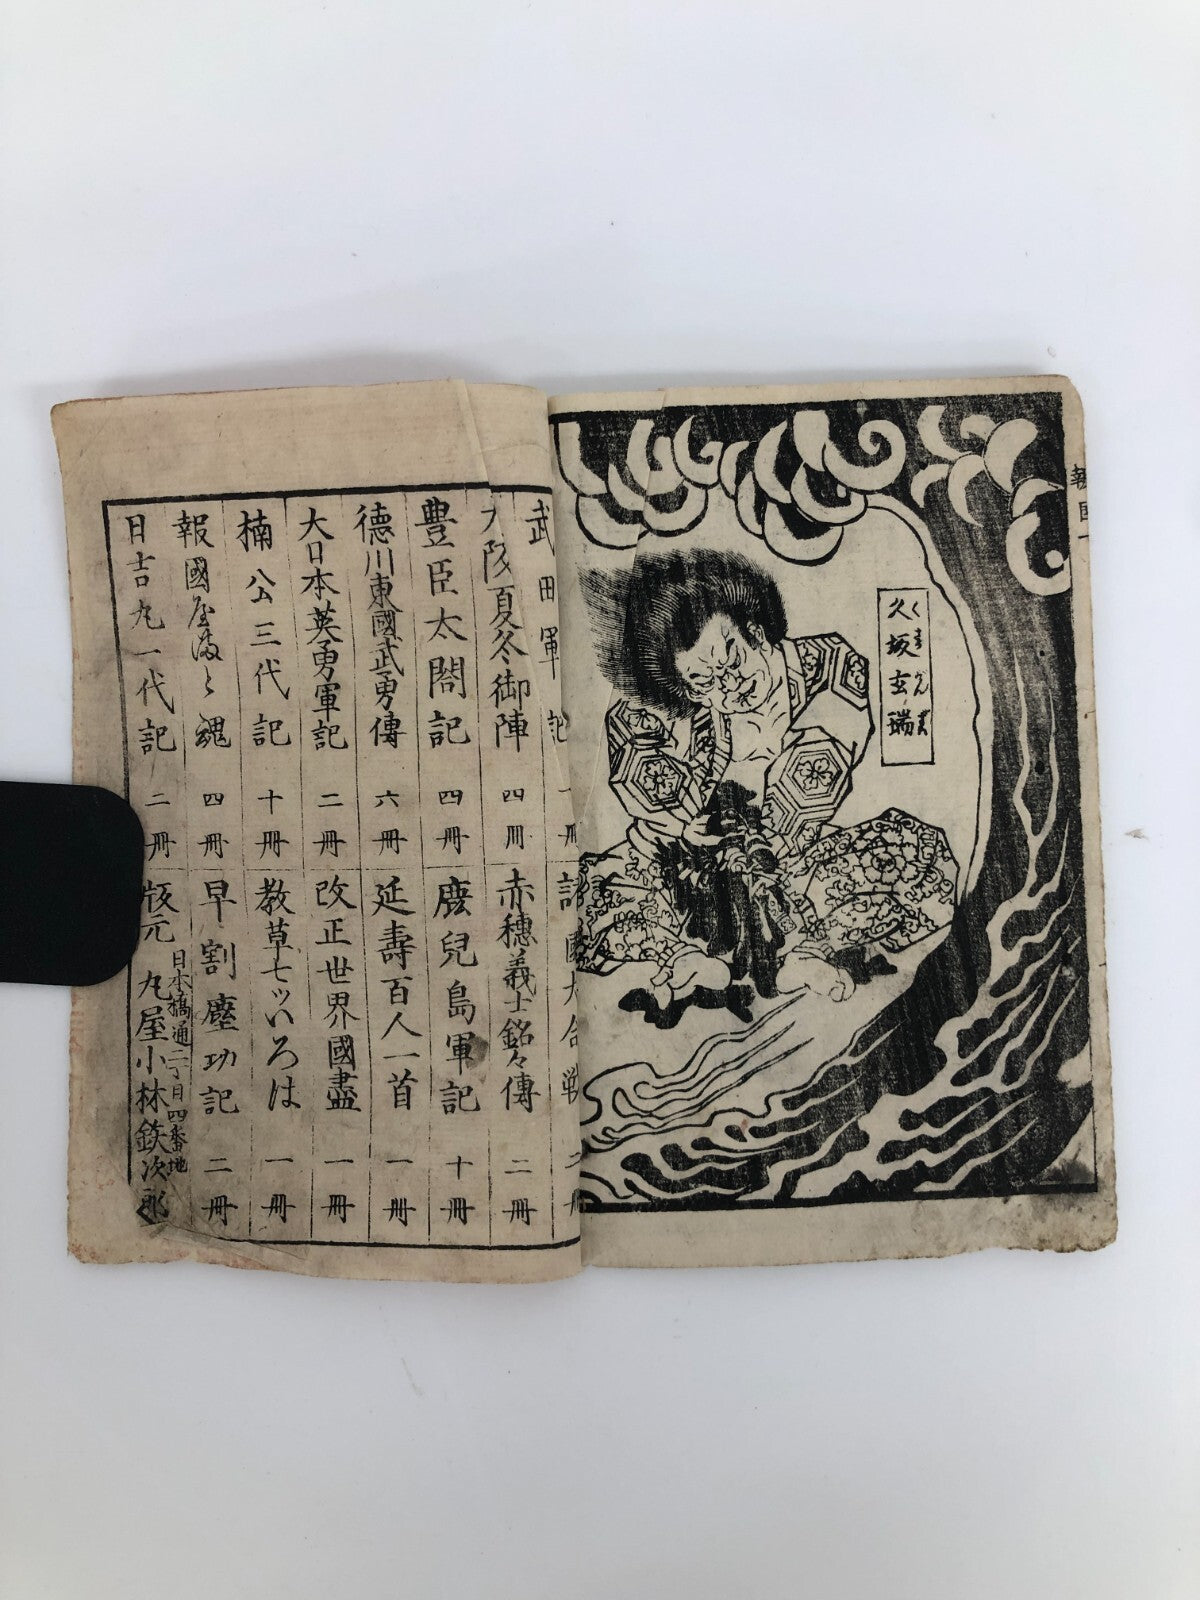 久坂玄瑞
武田軍記
大阪夏冬御陣 四冊
豊臣太閤記 四冊
德川東國武勇傳 六冊
大日本英勇軍記 二冊
楠公三代記 十冊
報國 魂 四冊
日吉丸一代記 二冊
諸國大合戦
赤穗義士銘々傳 二冊
鹿兒島軍記 十冊
延壽百人一首 一冊
改正世界國盡 一冊
教草七ツいろは 一冊
早割塵功記 二冊
版元
日本橋通二丁目四番地
丸屋小林鉄次郎